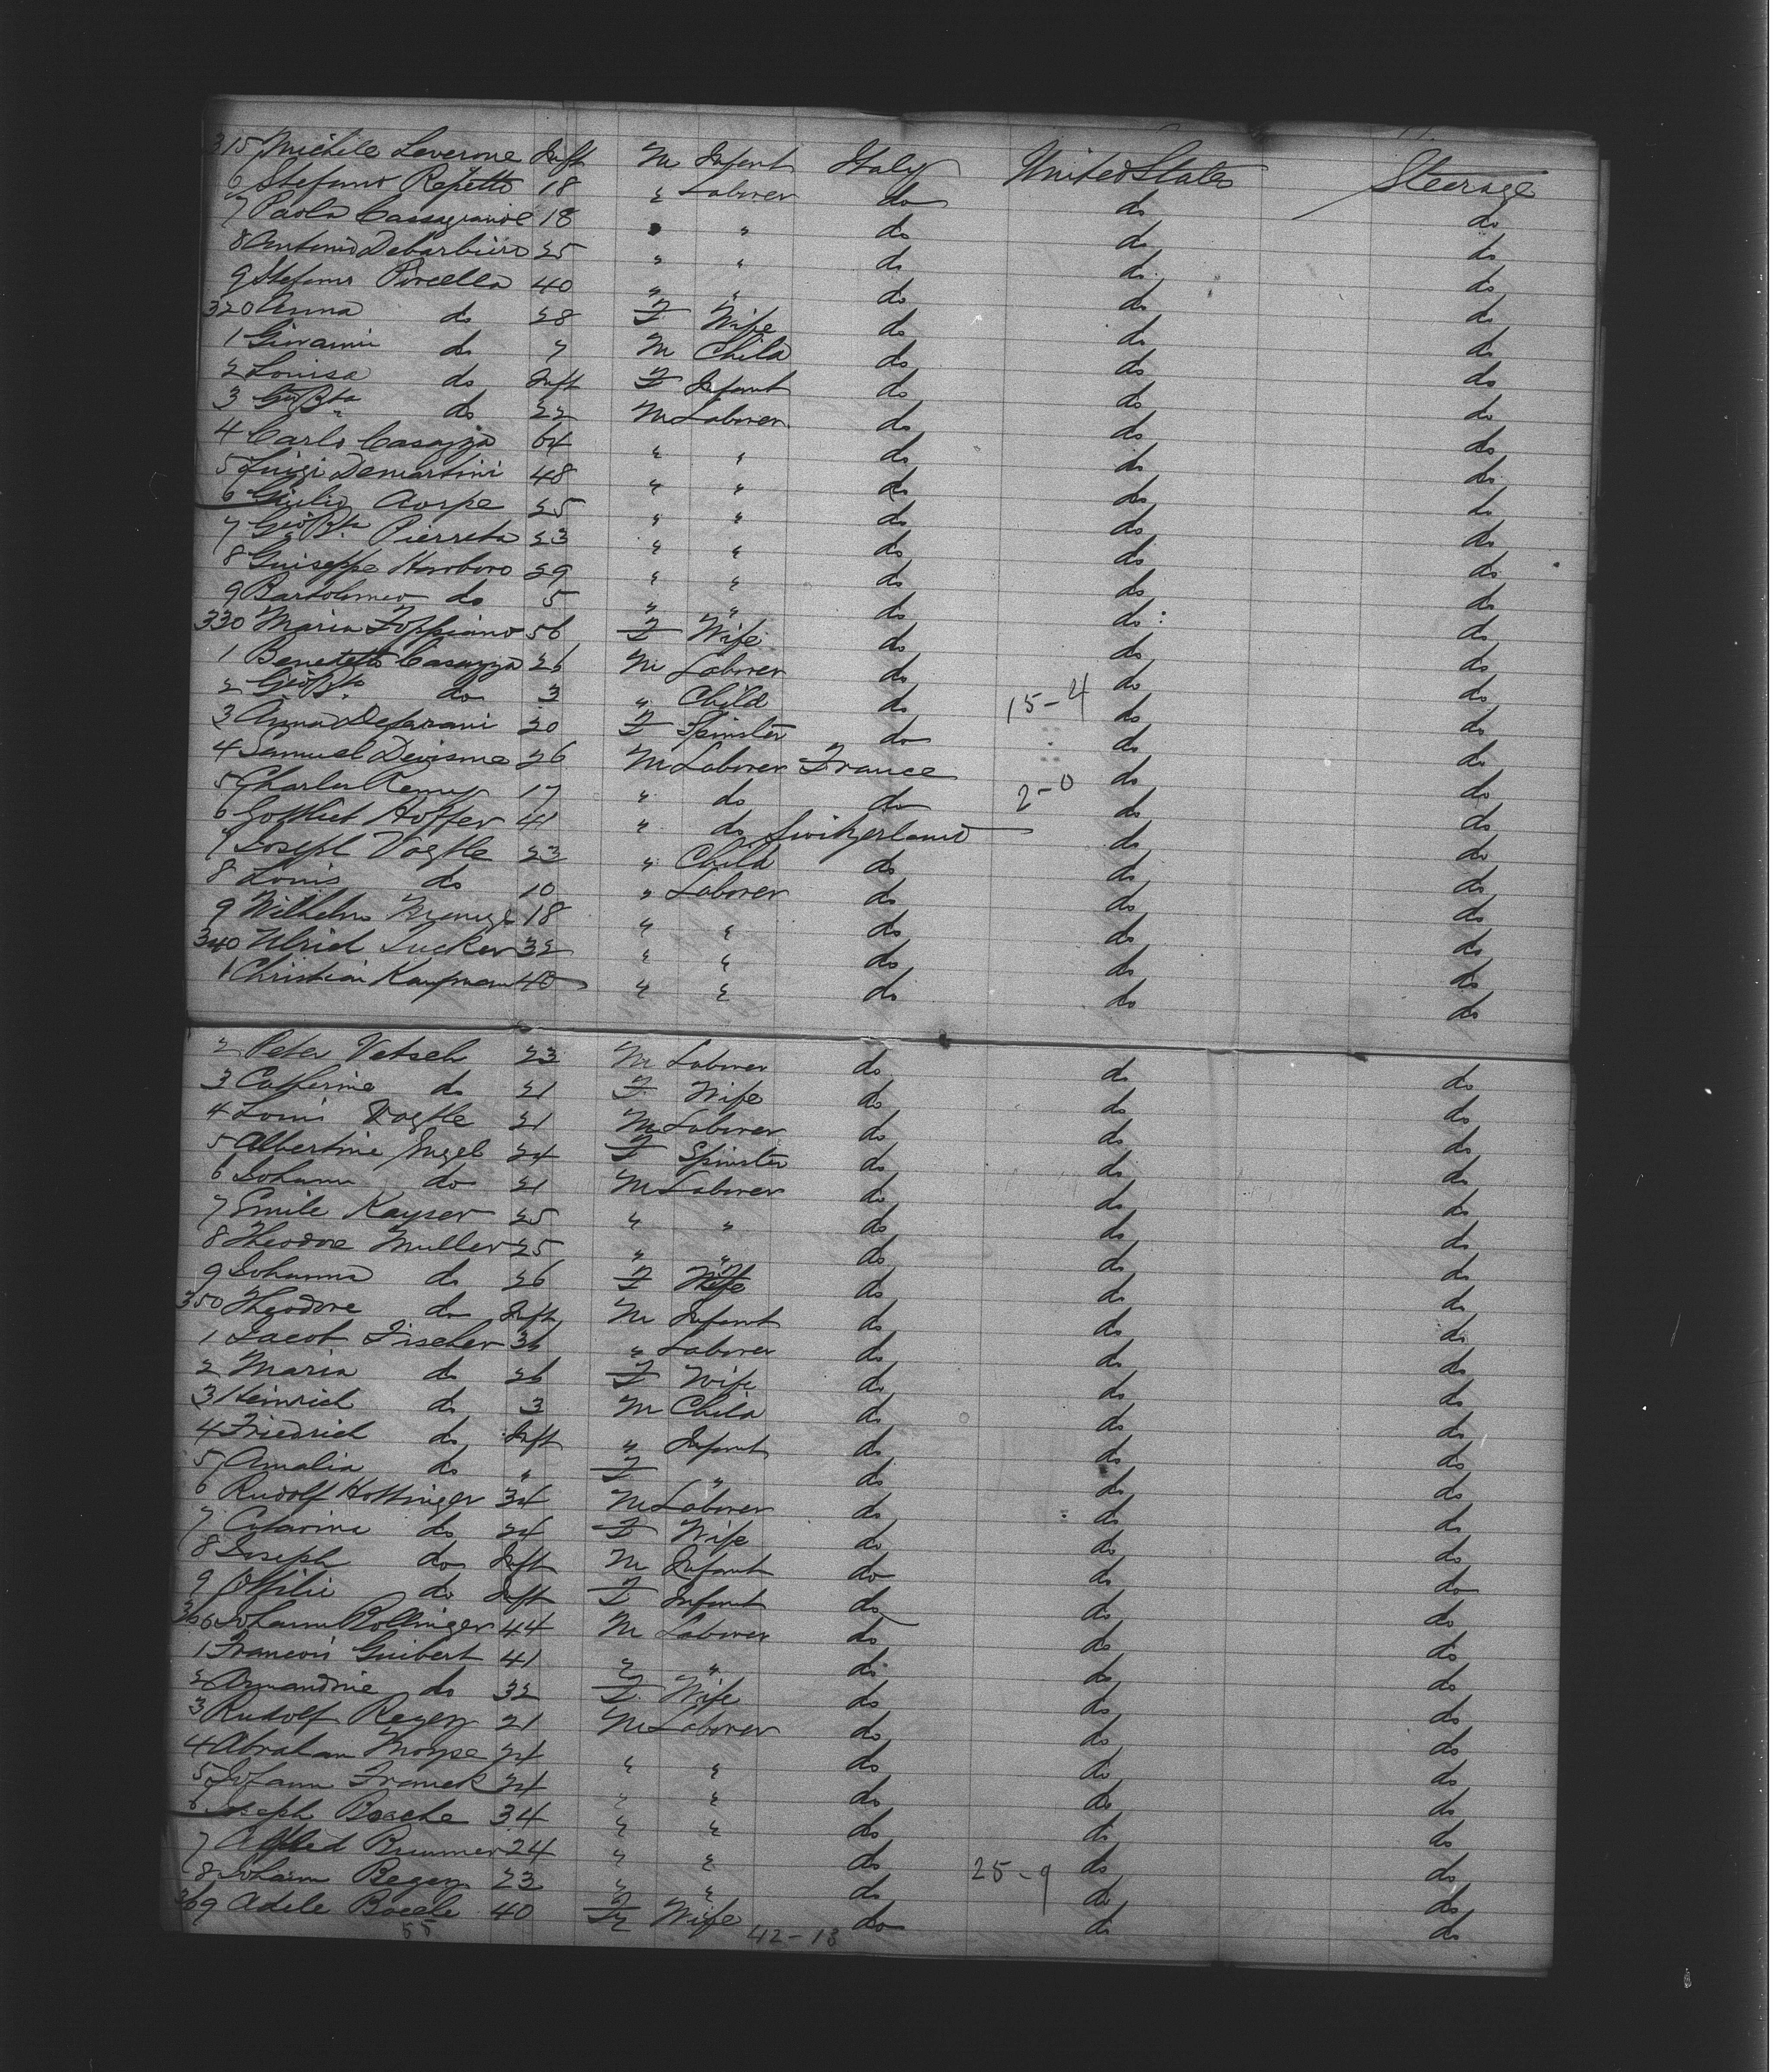 315 Michele Leverone Inft M Infant Italy United States Steerage
6 Stefano Repetto 18 " Laborer do do do
7 Paolo Cassagrande 18 " " do do do
8 Antonio Debarbieri 25 " " do do do
9 Stefano Porcella 40 " " do do do
320 Anna do 28 F Wife do do do
1 Giovanni do 7 M Child do do do
2 Louisa do Inft F Infant do do do
3 Gio Bta do 22 M Laborer do do do
4 Carlo Casazza 64 " " do do do
5 Luigi Demartini 48 " " do do do
6 Giulio Aorpe 25 " " do do do
7 Gio Bta Pierreta 23 " " do do do
8 Guiseppe Harboro 29 " " do do do
9 Bartolomeo do 5 " " do do do
330 Maria Foppiano 56 F Wife do do do
1 Benedetto Casazza 26 M Laborer do do do
2 Gio Bta do 3 " Child do 15-4 do do
3 Anna 20 F Spinster do do do
4 Samuel Devisme 26 M Laborer France do do
5 Charles Remy 17 " do do 2-0 do do
6 Gottlieb Hoffer 41 " do Switzerland do do
7 Joseph Vogtle 23 " Child do do do
8 Louis do 10 " Laborer do do do
9 Wilhelm 18 " " do do do
340 Ulrich Zucker 32 " " do do do
1 Christian Kaufmann 40 " " do do do
2 Peter Vetsch 23 M Laborer do do do
3 Catherine do 21 F Wife do do do
4 Louis Vogtle 21 M Laborer do do do
5 Albertine Engel 24 F Spinster do do do
6 Johann do 21 M Laborer do do do
7 Emile Kayser 25 " " do do do
8 Theodore Muller 25 " " do do do
9 Johanna do 26 F Wife do do do
350 Theodore do Inft M Infant do do do
1 Jacob Fischer 36 " Laborer do do do
2 Maria do 26 F Wife do do do
3 Heinrich do 3 M Child do do do
4 Friedrich do Inft " Infant do do do
5 Amalia do " F " do do do
6 Rudolf Hottinger 34 M Laborer do do do
7 Catarina do 24 F Wife do do do
8 Joseph do Inft M Infant do do do
9 Ottilie do Inft F Infant do do do
360 Johann Rollinger 44 M Laborer do do do
1 Francois Guibert 41 " " do do do
2 Armandine do 32 F Wife do do do
3 Rudolf Regez 21 M Laborer do do do
4 Abraham Moyse 24 " " do do do
5 Johann Franck 24 " " do do do
6 Joseph Boache 34 " " do do do
7 Alfred Brunner 24 " " do do do
8 Johann Regez 23 " " do 25-9 do do
369 Adele Bocele 40 F Wife do do do
55 42-13